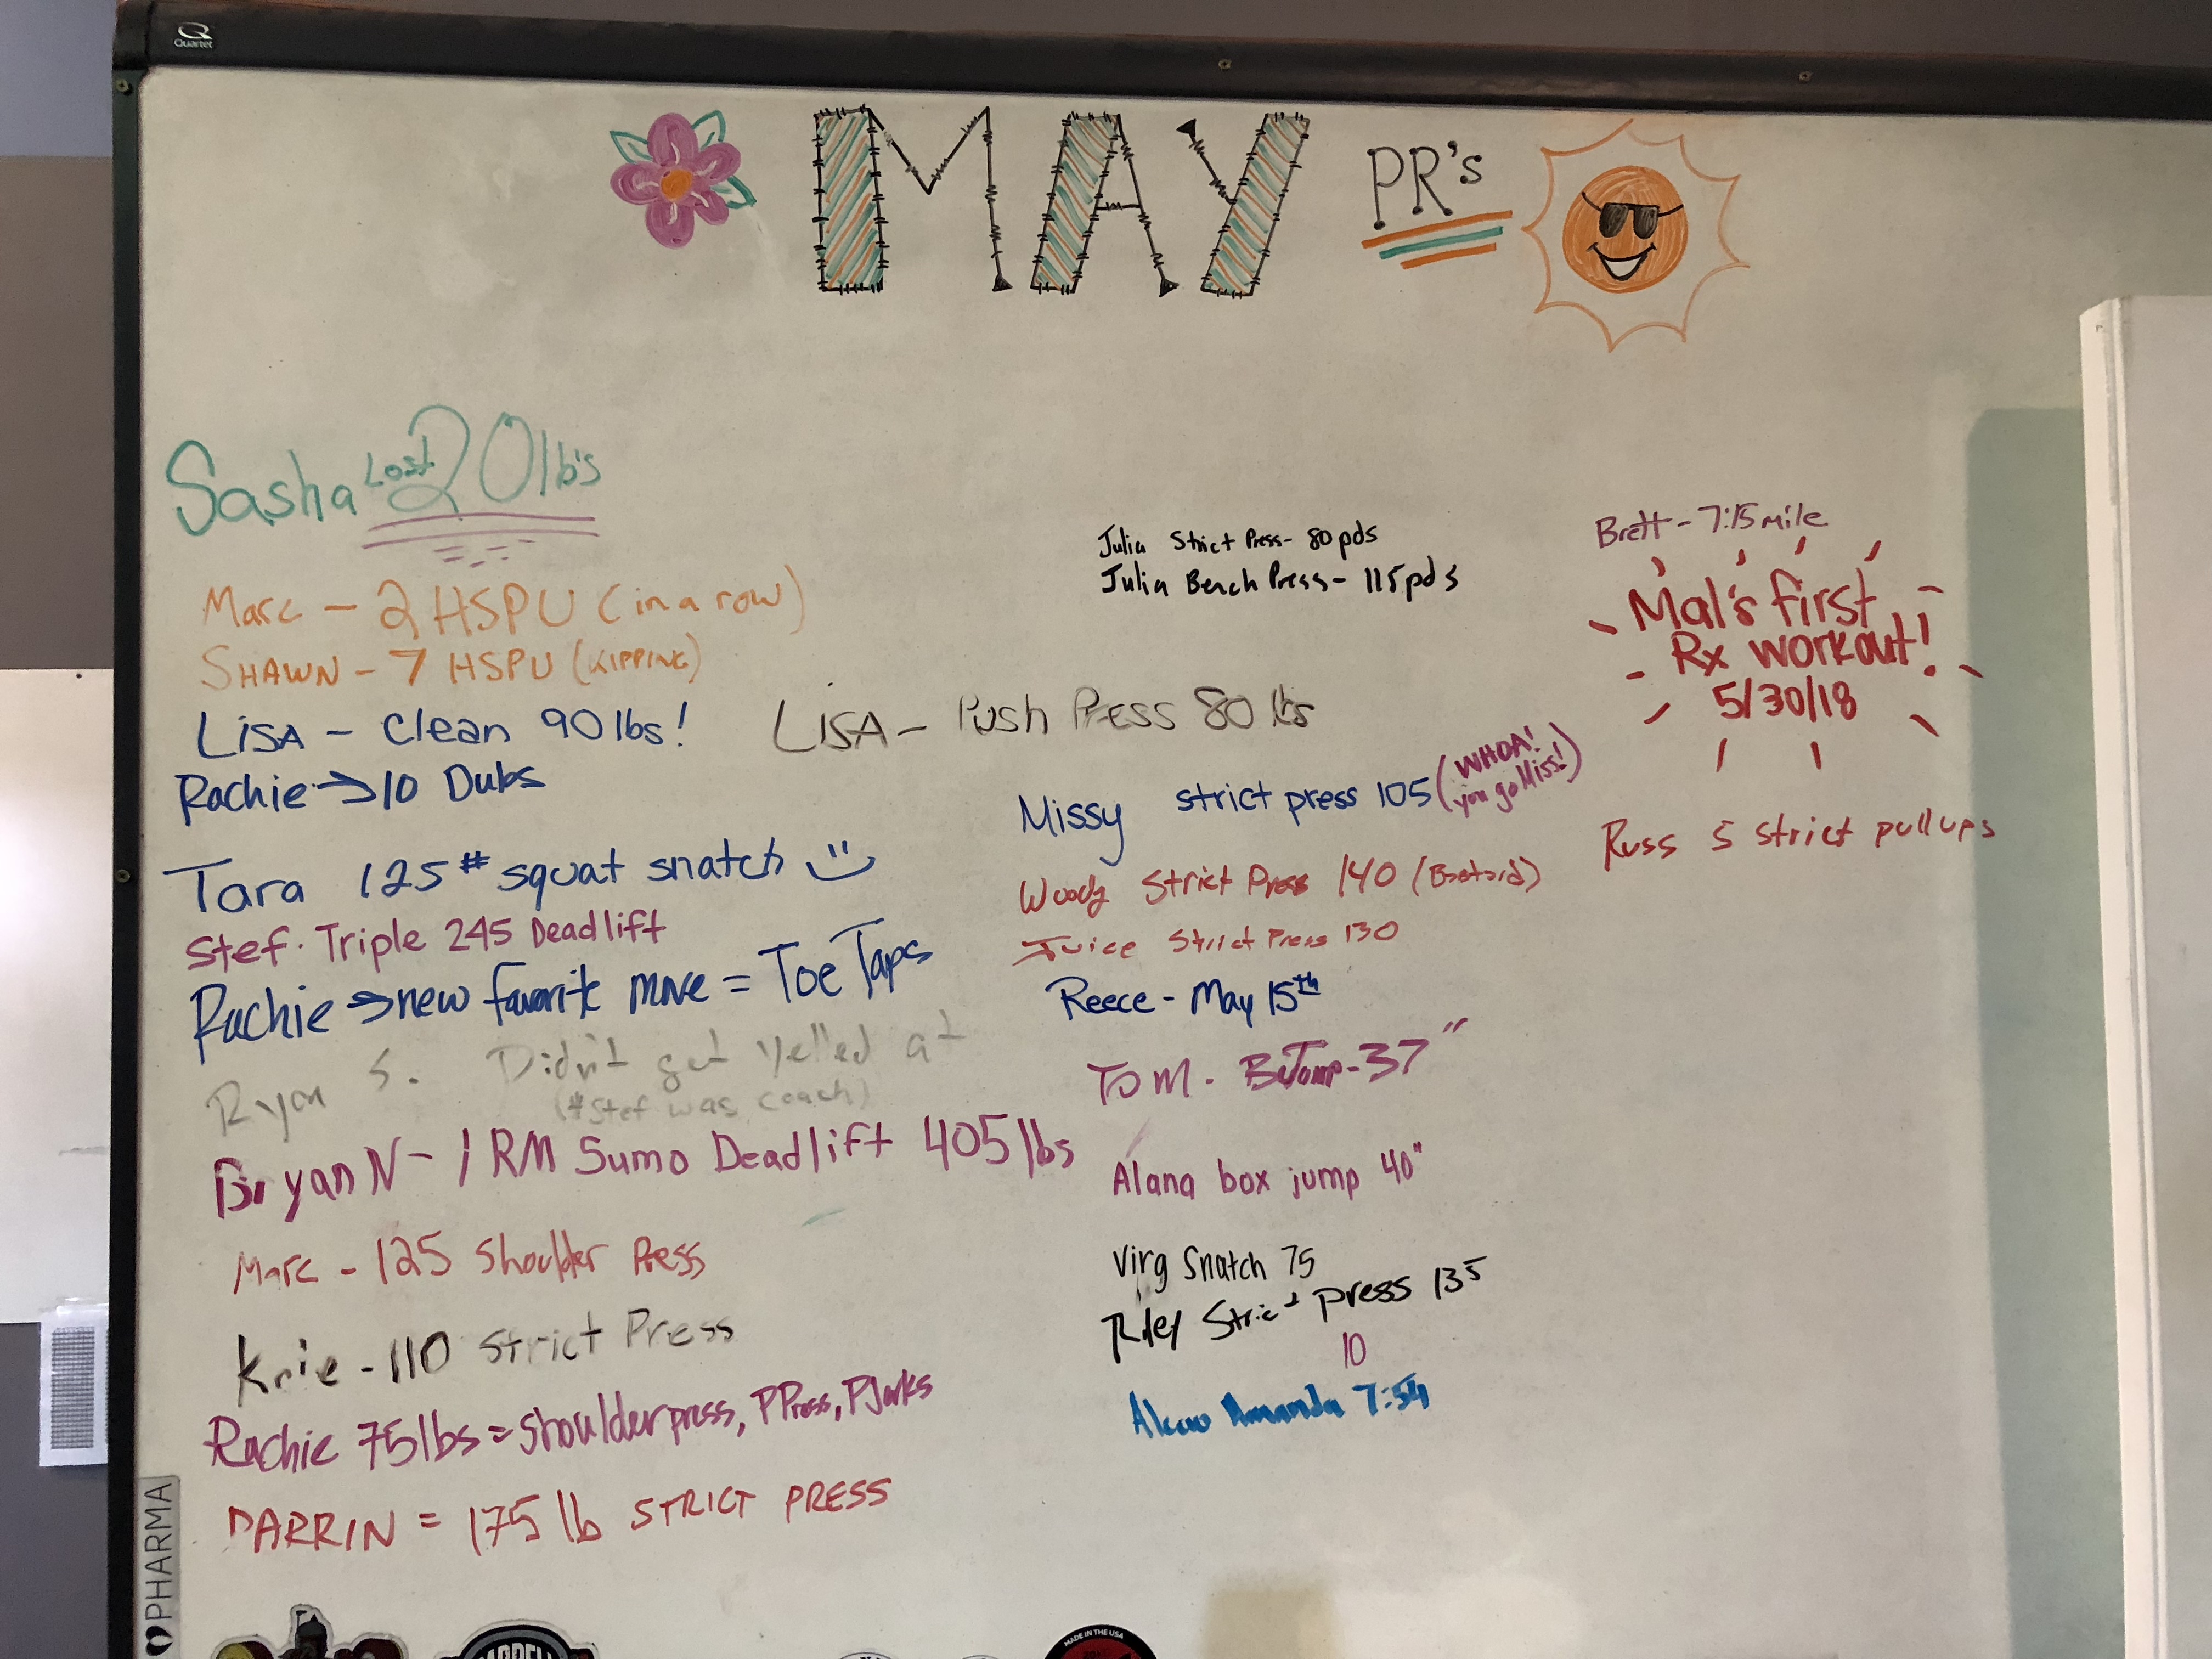 Quartet
MAY PR's
Sasha Lost 20lb's
Marc - 2 HSPU (in a row)
SHAWN - 7 HSPU (KIPPING)
LISA - Clean 90 lbs!
Rachie → 10 Dubs
Tara 125# squat snatch
Stef. Triple 245 Deadlift
Rachie → new favorite move = Toe Taps
Ryan S. Didn't get Yelled at
(#Stef was coach)
Bryan N - 1 RM Sumo Deadlift 405 lbs
Marc - 125 Shoulder Press
Knie - 110 Strict Press
Rachie 75lbs = shoulder press, PPress, PJerks
DARRIN = 175 lb STRICT PRESS
Julia Strict Press - 80 pds
Julia Bench Press - 115 pds
LISA - Push Press 80 lbs
Missy strict press 105 (WHOA! you go Miss!)
Woody Strict Press 140 (Bastard)
Juice Strict Press 130
Reece - May 15th
TOM. BJump - 37"
Alana box jump 40"
Virg Snatch 75
Riley Strict press 135
10
Amanda 7:54
Brett - 7:15 mile
Mal's first
Rx workout!
5/30/18
Russ 5 strict pull ups
PHARMA
MADE IN THE USA